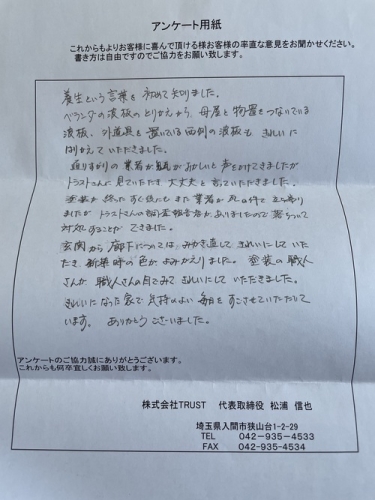 アンケート用紙
これからもよりお客様に喜んで頂ける様お客様の率直な意見をお聞かせください。
書き方は自由ですのでご協力をお願い致します。
養生という言葉を初めて知りました。
ベランダの波板のとりかえから、母屋と物置をつないでいる
波板、外道具を置いている西側の波板も、きれいに
はりかえていただきました。
通りすがりの業者が おかしいと声をかけてきましたが
トラストさんに見ていただき大丈夫と言っていただきました。
塗装が終ったすぐ後にもまた業者が 立ち寄り
ましたが トラストさんの 報告書がありましたので落ちついて
対処することができました。
玄関から廊下については みがき直して きれいにしていた
だき 新築時の色がよみがえりました。塗装の職人
さんが 職人さんの目でみて きれいにして いただきました。
きれいになった家で気持のよい毎日をすごさせていただいて
います。 ありがとうございました。
アンケートのご協力誠にありがとうございます。
これからも何卒宜しくお願い致します。
株式会社TRUST 代表取締役 松浦 信也
埼玉県入間市狭山台1-2-29
TEL 042-935-4533
FAX 042-934-5434